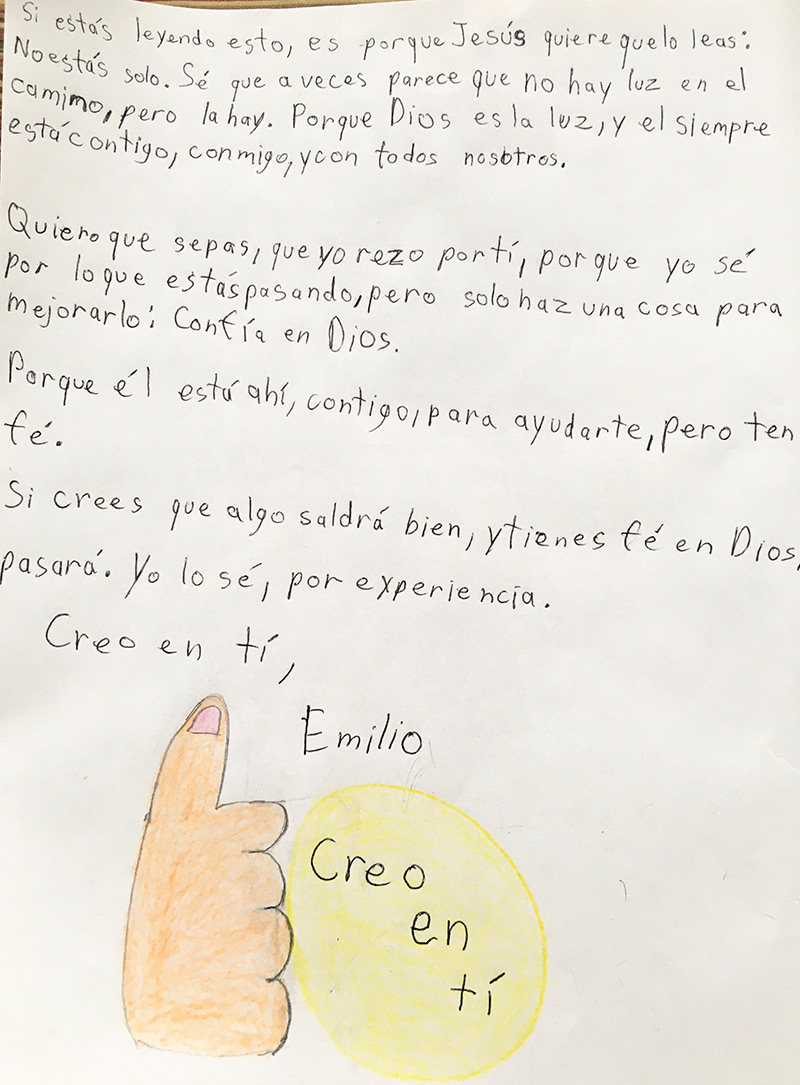 Si estás leyendo esto, es porque Jesús quiere que lo leas:
No estás solo. Sé que a veces parece que no hay luz en el
camino, pero la hay. Porque Dios es la luz, y el siempre
está contigo, conmigo, y con todos nosotros.
Quiero que sepas, que yo rezo por tí, por que yo sé
por lo que estás pasando, pero solo haz una cosa para
mejorarlo: Confía en Dios.
Porque él está ahí, contigo, para ayudarte, pero ten
fé.
Si crees que algo saldrá bien, y tienes fé en Dios,
pasará. Yo lo sé, por experiencia.
Creo en tí,
Emilio
Creo
en
tí